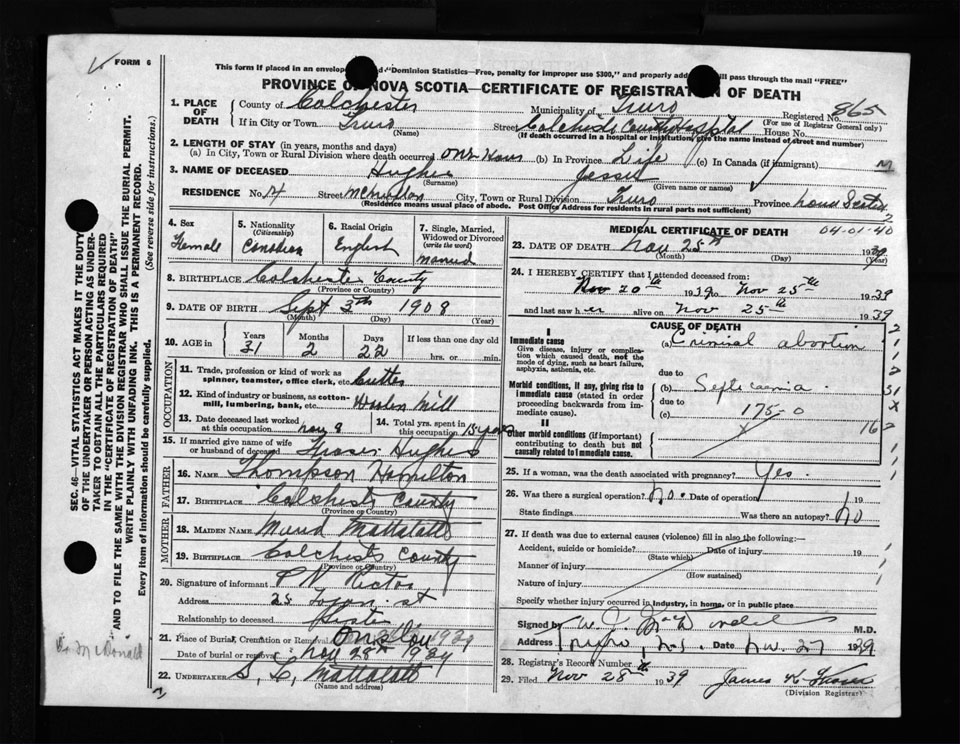 FORM 6
This form if placed in an envelope "Dominion Statistics—Free, penalty for improper use $300," and properly will pass through the mail "FREE"
PROVINCE OF NOVA SCOTIA—CERTIFICATE OF REGISTRATION OF DEATH
1. PLACE OF DEATH
County of Colchester Municipality of Truro Registered No. 865
(For use of Registrar General only)
If in City or Town Truro Street Colchester County Hospital House No.
(Name) (If death occurred in a hospital or institution, give the name instead of street and number)
2. LENGTH OF STAY (in years, months and days)
(a) In City, Town or Rural Division where death occurred one hour (b) In Province Life (c) In Canada (if immigrant)
3. NAME OF DECEASED Hughes Jessie
(Surname) (Given name or names)
RESIDENCE No. 4 Street City, Town or Rural Division Truro Province Nova Scotia
(Residence means usual place of abode. Post Office Address for residents in rural parts not sufficient)
4. Sex Female
5. Nationality (Citizenship) Canadian
6. Racial Origin English
7. Single, Married, Widowed or Divorced (write the word) married
8. BIRTHPLACE Colchester County
(Province or Country)
9. DATE OF BIRTH Sept 3th 1908
(Month) (Day) (Year)
10. AGE in Years 31 Months 2 Days 22 If less than one day old hrs. or min.
OCCUPATION
11. Trade, profession or kind of work as spinner, teamster, office clerk, etc. Cutter
12. Kind of industry or business, as cotton-mill, lumbering, bank, etc. Woolen Mill
13. Date deceased last worked at this occupation Nov 8
14. Total yrs. spent in this occupation 15 years
15. If married give name of wife or husband of deceased Fraser Hughes
FATHER
16. NAME Thompson Hamilton
17. BIRTHPLACE Colchester County
(Province or Country)
MOTHER
18. MAIDEN NAME Maud Mattatall
19. BIRTHPLACE Colchester County
(Province or Country)
20. Signature of informant
Address 25 st
Relationship to deceased
21. Place of Burial, Cremation or Removal Onslow 1939
Date of burial or removal Nov 28th 1939
22. UNDERTAKER S. C. Mattatall
(Name and address)
MEDICAL CERTIFICATE OF DEATH
04-01-40
23. DATE OF DEATH Nov 25th 1939
(Month) (Day) (Year)
24. I HEREBY CERTIFY that I attended deceased from:
Nov 20th 1939 to Nov 25th 1939
and last saw her alive on Nov 25th 1939
CAUSE OF DEATH
I
Immediate cause
Give disease, injury or complication which caused death, not the mode of dying, such as heart failure, asphyxia, asthenia, etc.
(a) Criminal abortion
due to
Morbid conditions, if any, giving rise to immediate cause (stated in order proceeding backwards from immediate cause).
(b) Septicaemia.
due to
(c) 175-0
II
Other morbid conditions (if important) contributing to death but not causally related to immediate cause.
25. If a woman, was the death associated with pregnancy? Yes.
26. Was there a surgical operation? No. Date of operation 19
State findings Was there an autopsy? No
27. If death was due to external causes (violence) fill in also the following:—
Accident, suicide or homicide? Date of injury 19
(State which)
Manner of injury
(How sustained)
Nature of injury
Specify whether injury occurred in industry, in home, or in public place
Signed by M.D.
Address Truro, N.S. Date Nov. 27 1939
28. Registrar's Record Number
29. Filed Nov 28th 1939 James K Fraser
(Division Registrar)
SEC. 46—VITAL STATISTICS ACT MAKES IT THE DUTY
OF THE UNDERTAKER OR PERSON ACTING AS UNDERTAKER
TO OBTAIN ALL THE PARTICULARS REQUIRED
IN THE "CERTIFICATE OF REGISTRATION OF DEATH"
AND TO FILE THE SAME WITH THE DIVISION REGISTRAR WHO SHALL ISSUE THE BURIAL PERMIT.
WRITE PLAINLY WITH UNFADING INK. THIS IS A PERMANENT RECORD.
Every item of information should be carefully supplied. (See reverse side for instructions.)
McDonald